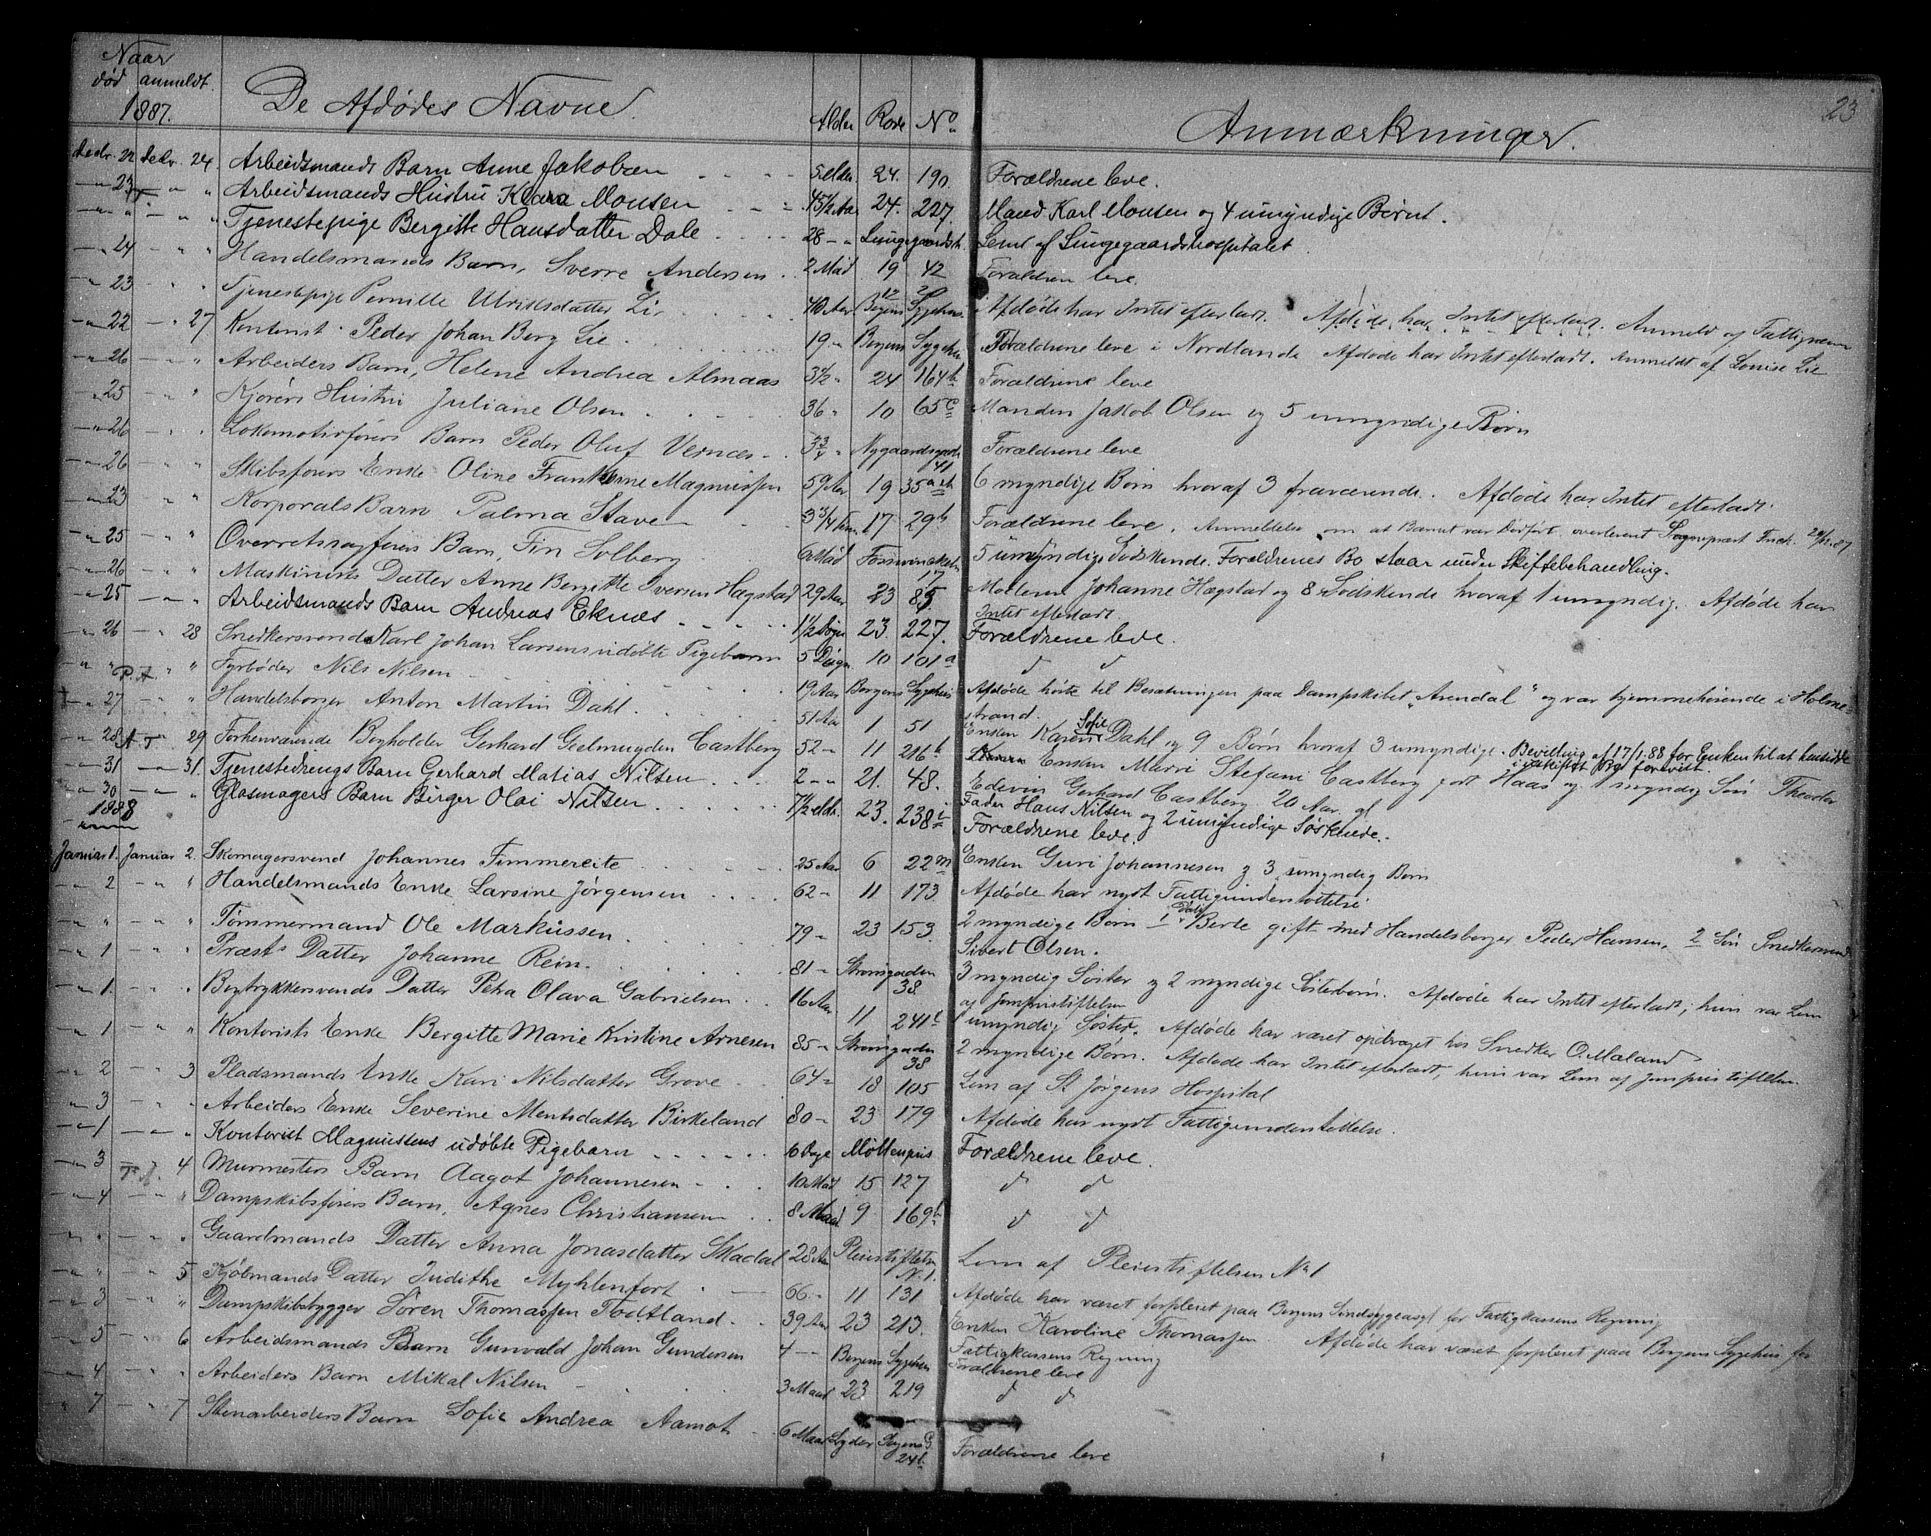 Naar
død anmeldt
1887.
De Afdødes Navne.
Alder Rode No
Anmærkninger.
23
Decbr. 22 Decbr. 24. Arbeidsmands Barn Anne Jakobsen 24. 190. Forældrene leve.
" 23 " " Arbeidsmands Hustru Klara Monsen 45½ Aar 24. 227. Mand Karl Monsen og 4 umyndige Børn.
" " " " Tjenestepige Bergitte Hansdatter Dale 28 " Lungegaardsh. Lem af Lungegaardshospitalet.
" 24 " " Handelsmands Barn, Sverre Andersen 2 Mdd 19 42 Forældren leve.
" 23 " " Tjenestepige Pernille Ulriksdatter Li 40 Aar Bergens Sygehus Afdøde har Intet efterladt. Afdøde har Intet efterladt. Anmeld af Fattigvæsn
" 22 " 27 Kontorist Peder Johan Berg Lie 19 " Bergens Sygehus Forældrene leve i Nordlande Afdøde har Intet efterladt. Anmeldt af Louise Lie
" 26 " " Arbeiders Barn, Helene Andrea Almaas 3½ " 24 164b Forældrene leve
" 25 " " Kjørers Hustru Juliane Olsen 36 " 10 65c Manden Jakob Olsen og 5 umyndige Børn
" 26 " " Lokomotivførers Barn Peder Oluf Vernæs 3¾ " Nygaardsgade 41 Forældrene leve
" 26 " " Skibsførers Enke Oline Magnussen 59 Aar 19 35a 6 myndige Børn hvoraf 3 fraværende. Afdøde har Intet efterladt.
" 23 " " Korporals Barn Palma Stave 3¾ 17 29b Forældrene leve. Anmeldelse om at Barnet var Dødfødt overleveret Sogneprest Frich 24/12.87
" 25 " " Overretssagførers Barn, Fin Solberg 17 5 umyndige Sødskende. Forældrenes Bo staar under Skiftebehandling.
" 26 " " Maskinists Datter Anne Bergitte Iversen Hagstad 29 Aar 23 85 Moderen Johanne Hagstad og 8 Sødskende hvoraf 1 umyndig. Afdøde har
Intet efterladt.
" 25 " " Arbeidsmands Barn Andreas Eknæs 1½ Døgn 23. 227. Forældrene leve.
" 26 " 28 Snedkersvend Karl Johan Larsens udøbte Pigebarn 5 Døgn 10 101a d d
" " " " Fyrbøder Nils Nilsen 19 Aar Bergens Sygehus Afdøde hørte til Besætningen paa Dampskibet "Arendal" og var hjemmehørende i Holme-
strand.
" 27 " " Handelsborger Anton Martin Dahl 51 Aar 1 51 Enken Karen Sofie Dahl og 9 Børn hvoraf 3 umyndige. Bevilling af 17/1.88 for Enken til at hensidde
i uskiftet Bo
" 28 " 29 Forhenværende Bogholder Gerhard Geelmuyden Castberg 52 " 11 216b Enken Marri Stefani Castberg født Haas og 1 myndig Søn Theodor
Edevin Gerhard Castberg 20 Aar gl
" 31 " 31. Tjenestedrengs Barn Gerhard Matias Nilsen 2 " 21. 48. Fader Hans Nilsen og 2 umyndige Søskende.
" 30 " " Glasmagers Barn Birger Olai Nilsen 7½ 23. 238 Forældrene leve.
1888
Januar 1. Januar 2. Skomagersvend Johannes Timmereite 25 Aar 6 22m Enken Guri Johannesen og 3 umyndig Børn
" 2 " " Handelsmands Enke Larsine Jørgensen 62 " 11 173 Afdøde har nydt Fattigunderstøttelse
" " " " Tømmermand Ole Markussen 79 " 23 153. 2 myndige Børn 1 Datter Berte gift med Handelsborger Peder Hansen, 2 Søn Snedkersvend
Sivert Olsen.
" 1 " " Præsts Datter Johanne Rein 81 " Strømgaden 38. 3 myndig Søster og 2 myndige Søsterbørn. Afdøde har Intet efterladt, hun var Lem
af Jomfrustiftelsen
" 1. " " Bogtrykkersvends Datter Petra Olava Gabrielsen 16 Aar 11 241b 1 umyndig Søster. Afdøde har været opdraget hos Snedker O. Maland
" 1 " " Kontorists Enke Bergitte Marie Kristine Arnesen 85 " Strømgaden 38 2 myndige Børn. Afdøde har Intet efterladt, hun var Lem af Jomfrustiftelsen
" 2 " 3 Pladsmands Enke Kari Nilsdatter Grove 64 " 18 105 Lem af St Jørgens Hospital
" 3 " " Arbeiders Enke Severine Mentsdatter Birkeland 80 " 23 179 Afdøde har nydt Fattigunderstøttelse.
" 1 " " Kontorist Magnussens udøbte Pigebarn 6 Dage Møllenpris Forældrene leve.
" 3 " 4 Murmesters Barn Aagot Johannesen 10 Mdd 15 127 d d
" 4 " " Dampskibsførers Barn, Agnes Christiansen 8 Maad 9 169b d d
" " " " Gaardmands Datter Anna Jonasdatter Skadal 28 Aar Pleiestiftelsen No 1. Lem af Pleiestiftelsen No 1
" " " 5 Kjøbmands Datter Judithe Myhlenfort 66 " 11 131 Afdøde har været forpleiet paa Bergens Sindsygeasyl for Fattigkassens Regning
" 3 " " Dampskibsbygger Søren Thomassen Todtland 39 Aar 23 213. Enken Karoline Thomassen. Afdøde har været forpleiet paa Bergens Sygehus for
Fattigkassens Regning
" 5 " 6 Arbeidsmands Barn Gunvald Johan Gundersen 4 " Bergens Sygehus Forældrene leve
" 4 " " Arbeiders Barn Mikal Nilsen 3 Maad 23 219 d d
" 7 " 7 Stenarbeiders Barn Sofie Andrea Aamot 6 Maad Lyder Sagens G. 24b. Forældrene leve